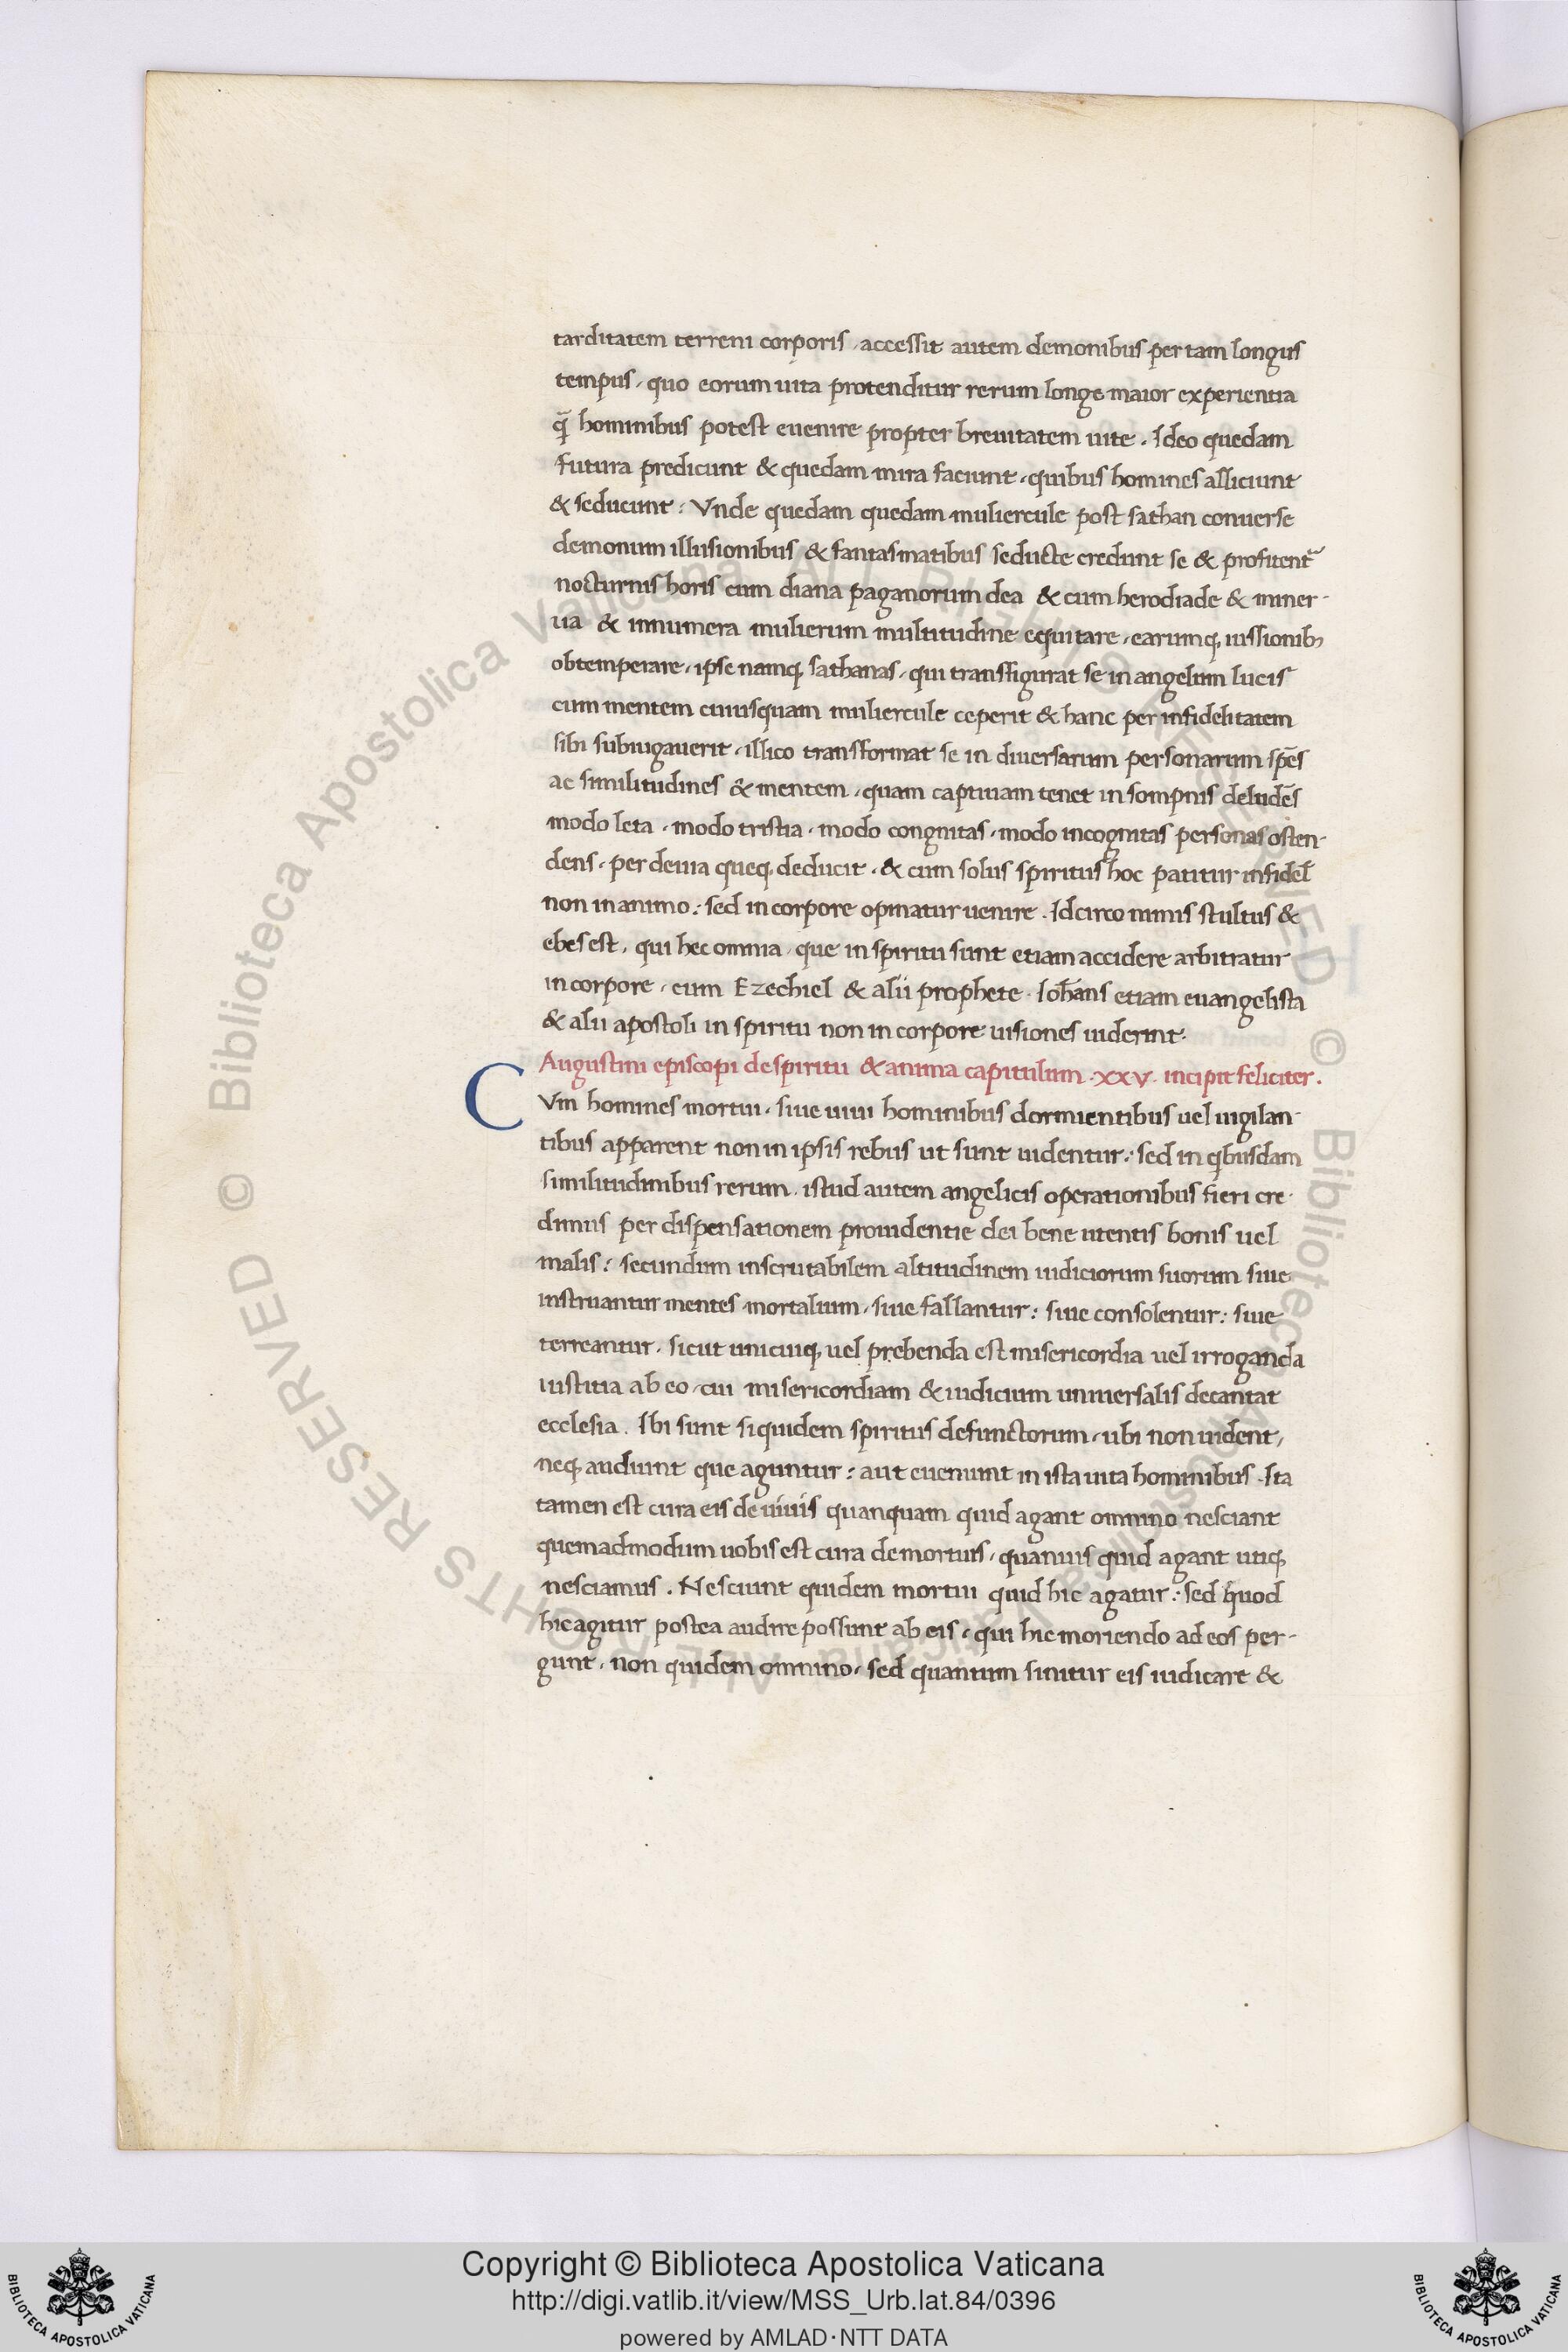 tarditatem terreni corporis, accessit autem demonibus per tam longus
tempus, quo eorum uita protenditur rerum longe maior experientia
q̄ hominibus potest euenire propter breuitatem uite. Ideo quedam
futura predicunt & quedam mira faciunt, quibus homines alliciunt
& seducunt: Vnde quedam quedam muliercule post sathan conuerse
demonum illusionibus & fantasmatibus seducte credunt se & profitent᷑
nocturnis horis cum diana paganorum dea & cum herodiade & miner-
ua & innumera mulierum multitudine equitare, earumq; iussionib;
obtemperare, ipse namq; sathanas, qui transfigurat se in angelum lucis
cum mentem cuiusquam muliercule ceperit & hanc per infidelitatem
sibi subiugauerit, illico transformat se in diuersarum personarum sp̄es
ac similitudines & mentem, quam captiuam tenet in sompnis deludēs
modo leta, modo tristia, modo congnitas, modo incognitas personas osten-
dens, per deuia queq; deducit, & cum solus spiritus hoc patitur infidel̄
non in animo: sed in corpore opinatur uenire. Idcirco nimis stultus &
ebes est, qui hec omnia, que in spiritu sunt etiam accidere arbitratur
in corpore, cum Ezechiel & alii prophete. Ioh̄ans etiam euangelista
& alii apostoli in spiritu non in corpore uisiones uiderint.
Augustini episcopi de spiritu & anima capitulum .xxv. incipit feliciter.
CVm homines mortui, siue uiui hominibus dormientibus uel uigilan-
tibus apparent non in ipsis rebus ut sunt uidentur: sed in qibusdam
similitudinibus rerum, istud autem angelicis operationibus fieri cre-
dimus per dispensationem prouidentie dei bene utentis bonis uel
malis: secundum inscrutabilem altitudinem iudiciorum suorum siue
instruantur mentes mortalium, siue fallantur: siue consolentur: siue
terreantur, sicut unicuiq; uel prebenda est misericordia uel irroganda
iustitia ab eo, cui misericordiam & iudicium uniuersalis decantat
ecclesia. Ibi sunt siquidem spiritus defunctorum, ubi non uident,
neq; audiunt que aguntur: aut eueniunt in ista uita hominibus. Ita
tamen est cura eis de uiuis quanquam quid agant omnino nesciant
quemadmodum uobis est cura de mortuis, quanuis quid agant utiq;
nesciamus. Nesciunt quidem mortui quid hic agatur: sed quod
hic agitur postea audire possunt ab eis, qui hic moriendo ad eos per-
gunt, non quidem omnino, sed quantum sinitur eis iudicare &
© Biblioteca Apostolica Vaticana ALL RIGHTS RESERVED © Biblioteca Apostolica Vaticana ALL RIGHTS RESERVED
Copyright © Biblioteca Apostolica Vaticana
http://digi.vatlib.it/view/MSS_Urb.lat.84/0396
powered by AMLAD·NTT DATA
BIBLIOTECA APOSTOLICA VATICANA
BIBLIOTECA APOSTOLICA VATICANA